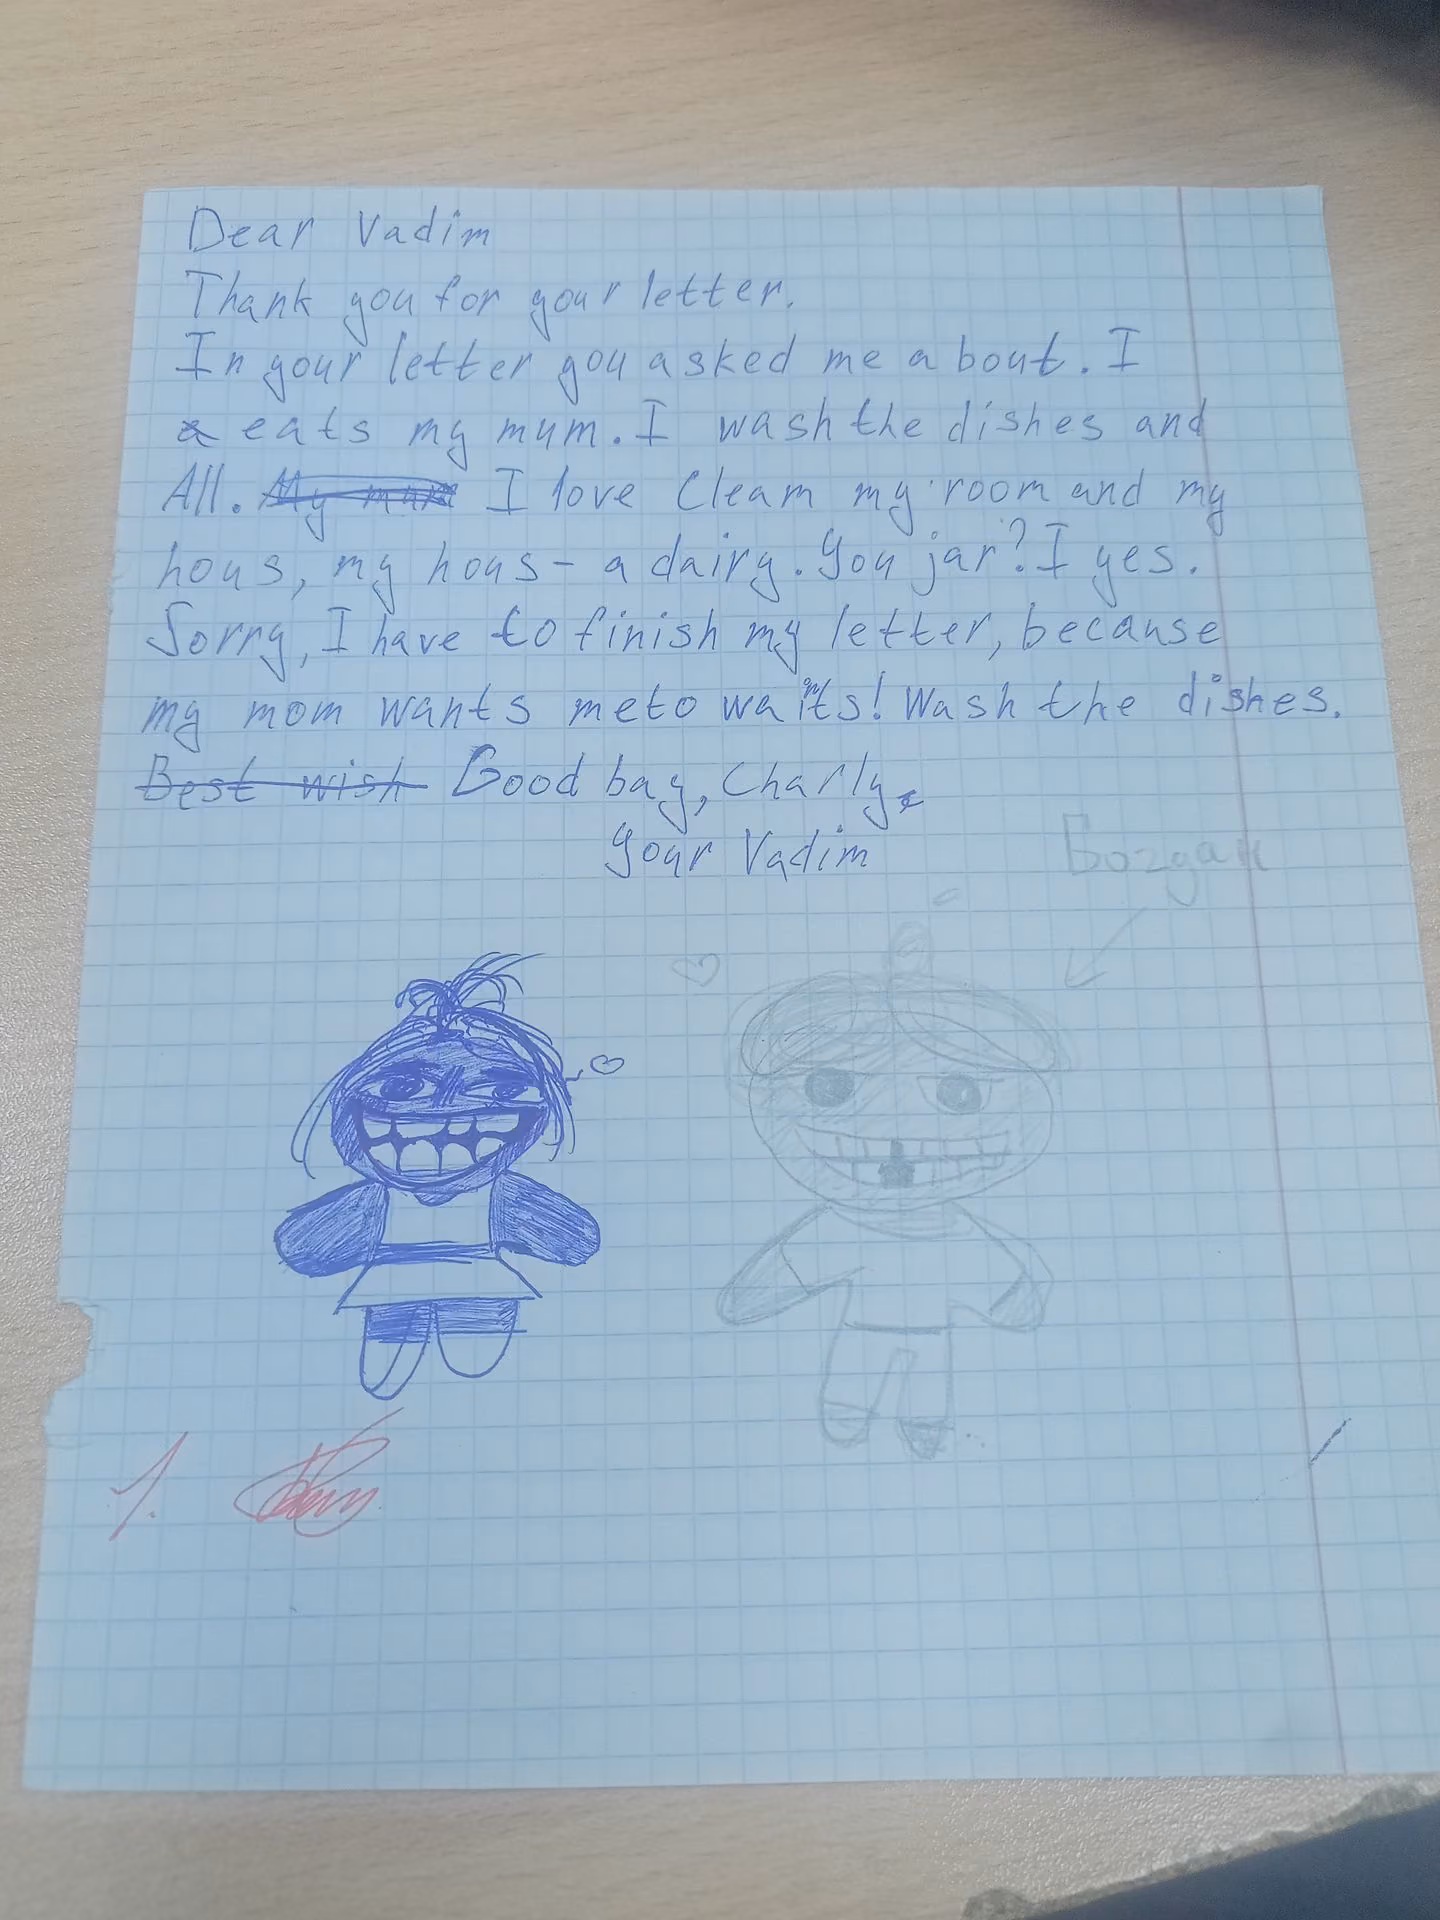 Dear Vadim
Thank you for your letter.
In your letter you asked me about. I
eats my mum. I wash the dishes and
All. I love Cleam my room and my
hous, my hous - a dairy. You jar? I yes.
Sorry, I have to finish my letter, because
my mom wants me to waits! Wash the dishes.
Best wish Good bay, Charly.
Your Vadim